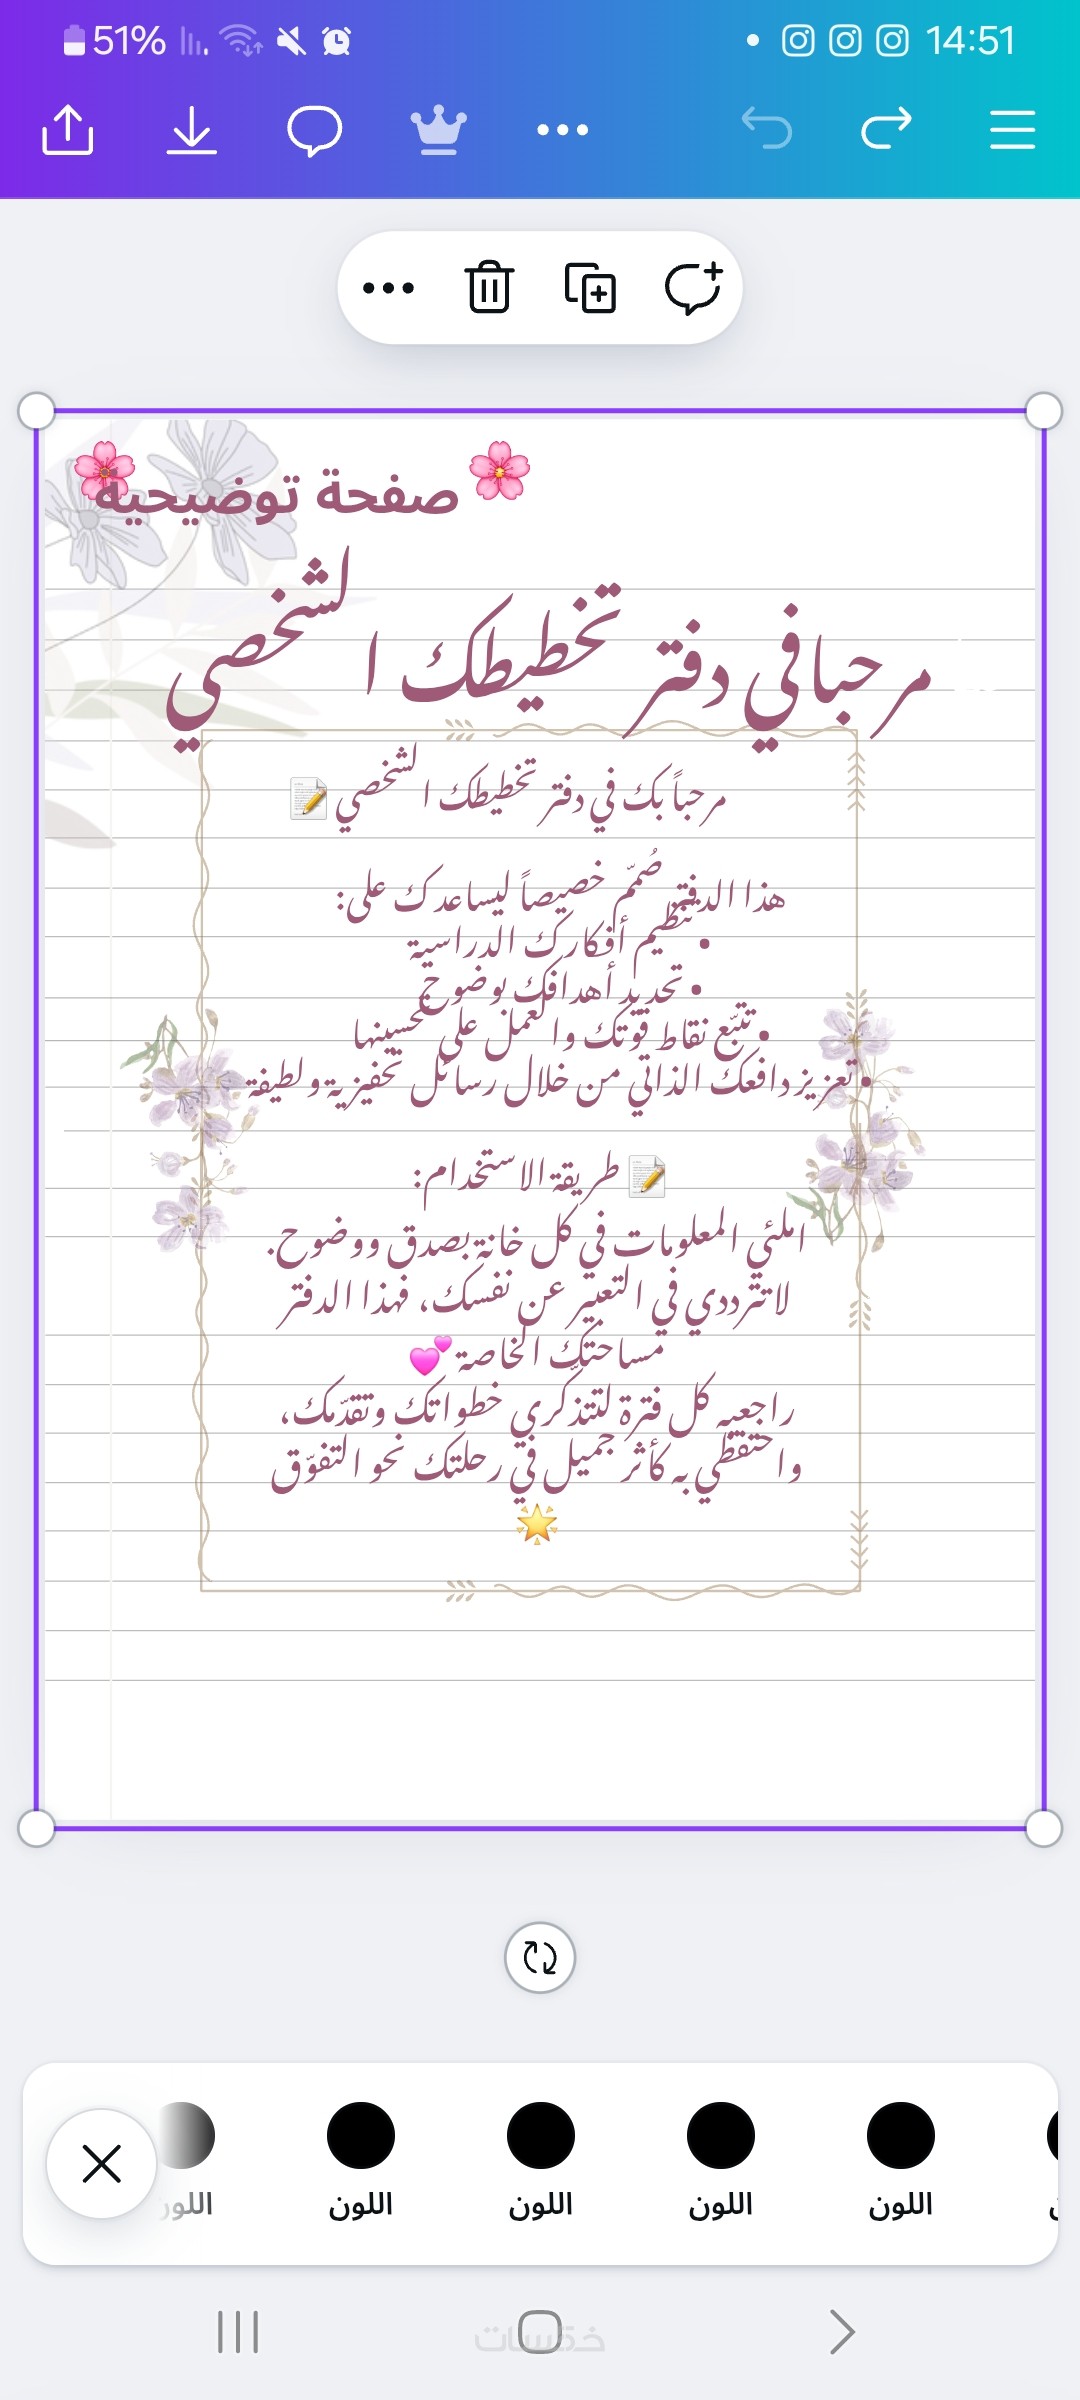 51%
14:51
صفحة توضيحية
مرحبا في دفتر تخطيطك الشخصي
مرحباً بك في دفتر تخطيطك الشخصي
هذا الدفتر صُمّم خصيصاً ليساعدك على:
• تنظيم أفكارك الدراسية
• تحديد أهدافك بوضوح
• تتبّع نقاط قوتك والعمل على تحسينها
• تعزيز دافعك الذاتي من خلال رسائل تحفيزية ولطيفة
طريقة الاستخدام:
املئي المعلومات في كل خانة بصدق ووضوح.
لا تترددي في التعبير عن نفسك، فهذا الدفتر
مساحتكِ الخاصة
راجعيه كل فترة لتتذكري خطواتك وتقدّمك،
واحتفظي به كأثر جميل في رحلتك نحو التفوّق
اللون
اللون
اللون
اللون
اللون
خمسات